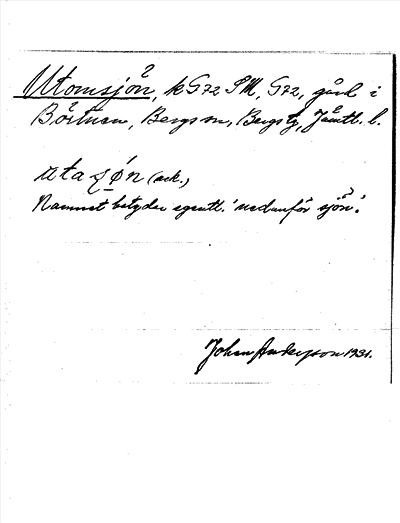 Utomsjön, k G72 SM, G72, gård i
Börtnan, Bergs sn, Bergs tg, Jämtl. l.
uta ʃø̄n (ack.)
Namnet betyder egentl. 'nedanför sjön'.
Johan Anderson 1931.